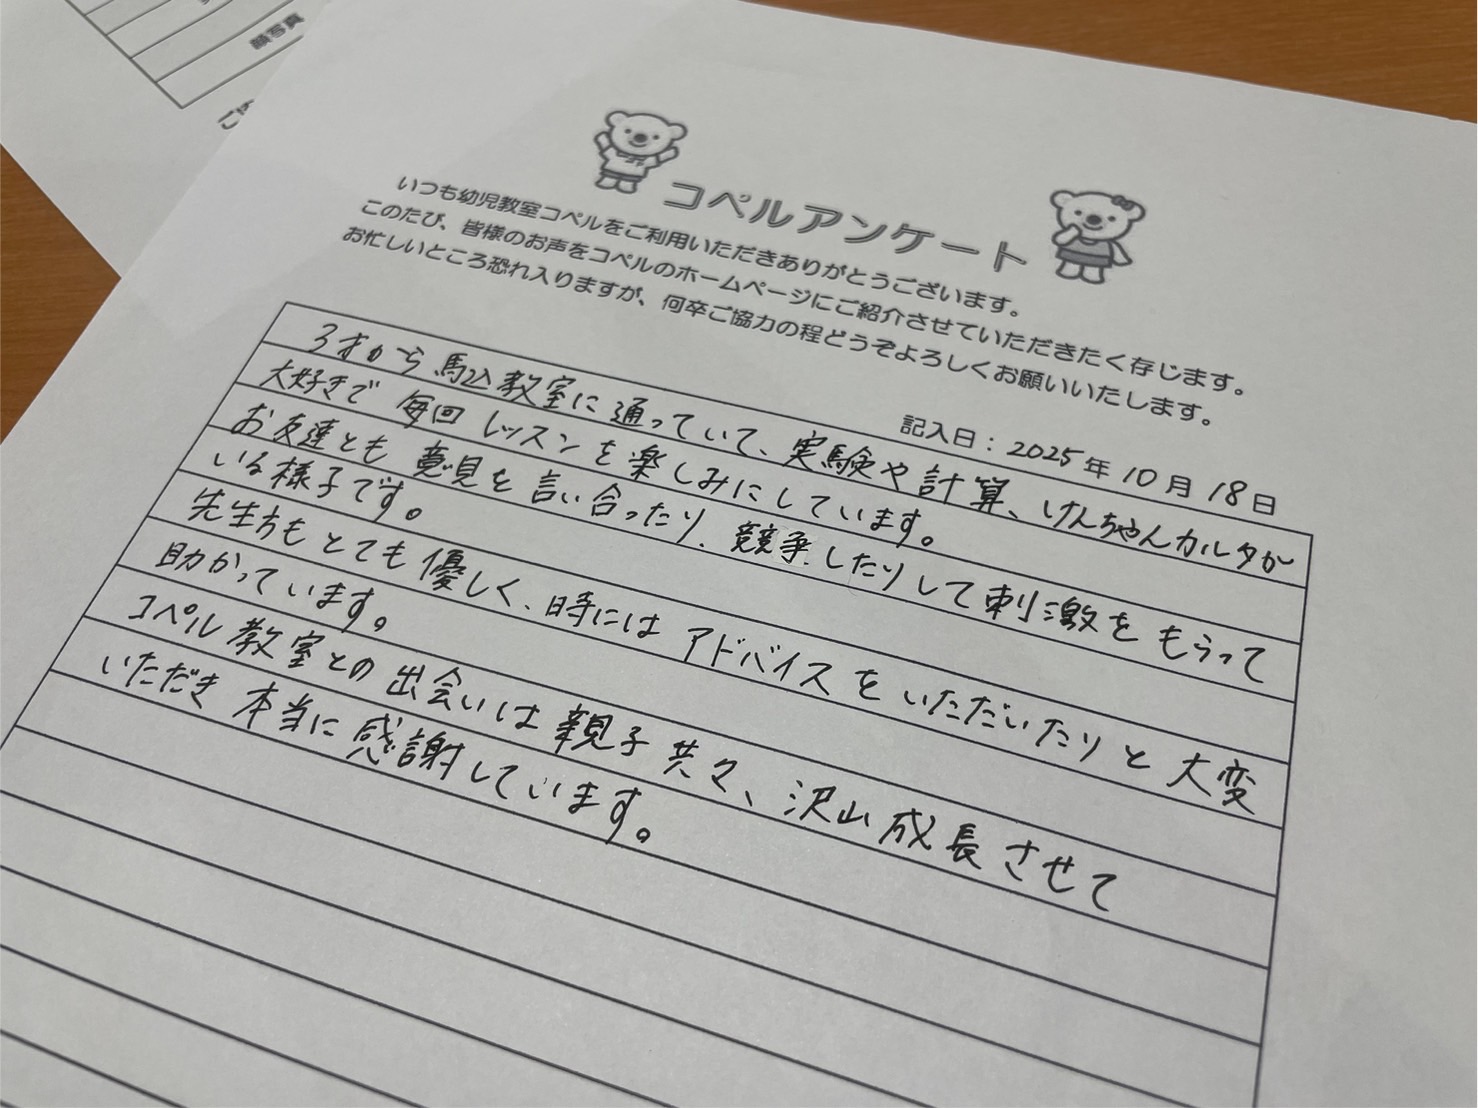 顔写真
コペルアンケート
いつも幼児教室コペルをご利用いただきありがとうございます。
このたび、皆様のお声をコペルのホームページにご紹介させていただきたく存じます。
お忙しいところ恐れ入りますが、何卒ご協力の程どうぞよろしくお願いいたします。
記入日：2025年10月18日
3才から馬込教室に通っていて、実験や計算、けんちゃんカルタが
大好きで毎回レッスンを楽しみにしています。
お友達とも意見を言い合ったり、競争したりして刺激をもらって
いる様子です。
先生方もとても優しく、時にはアドバイスをいただいたりと大変
助かっています。
コペル教室との出会いは親子共々、沢山成長させて
いただき本当に感謝しています。